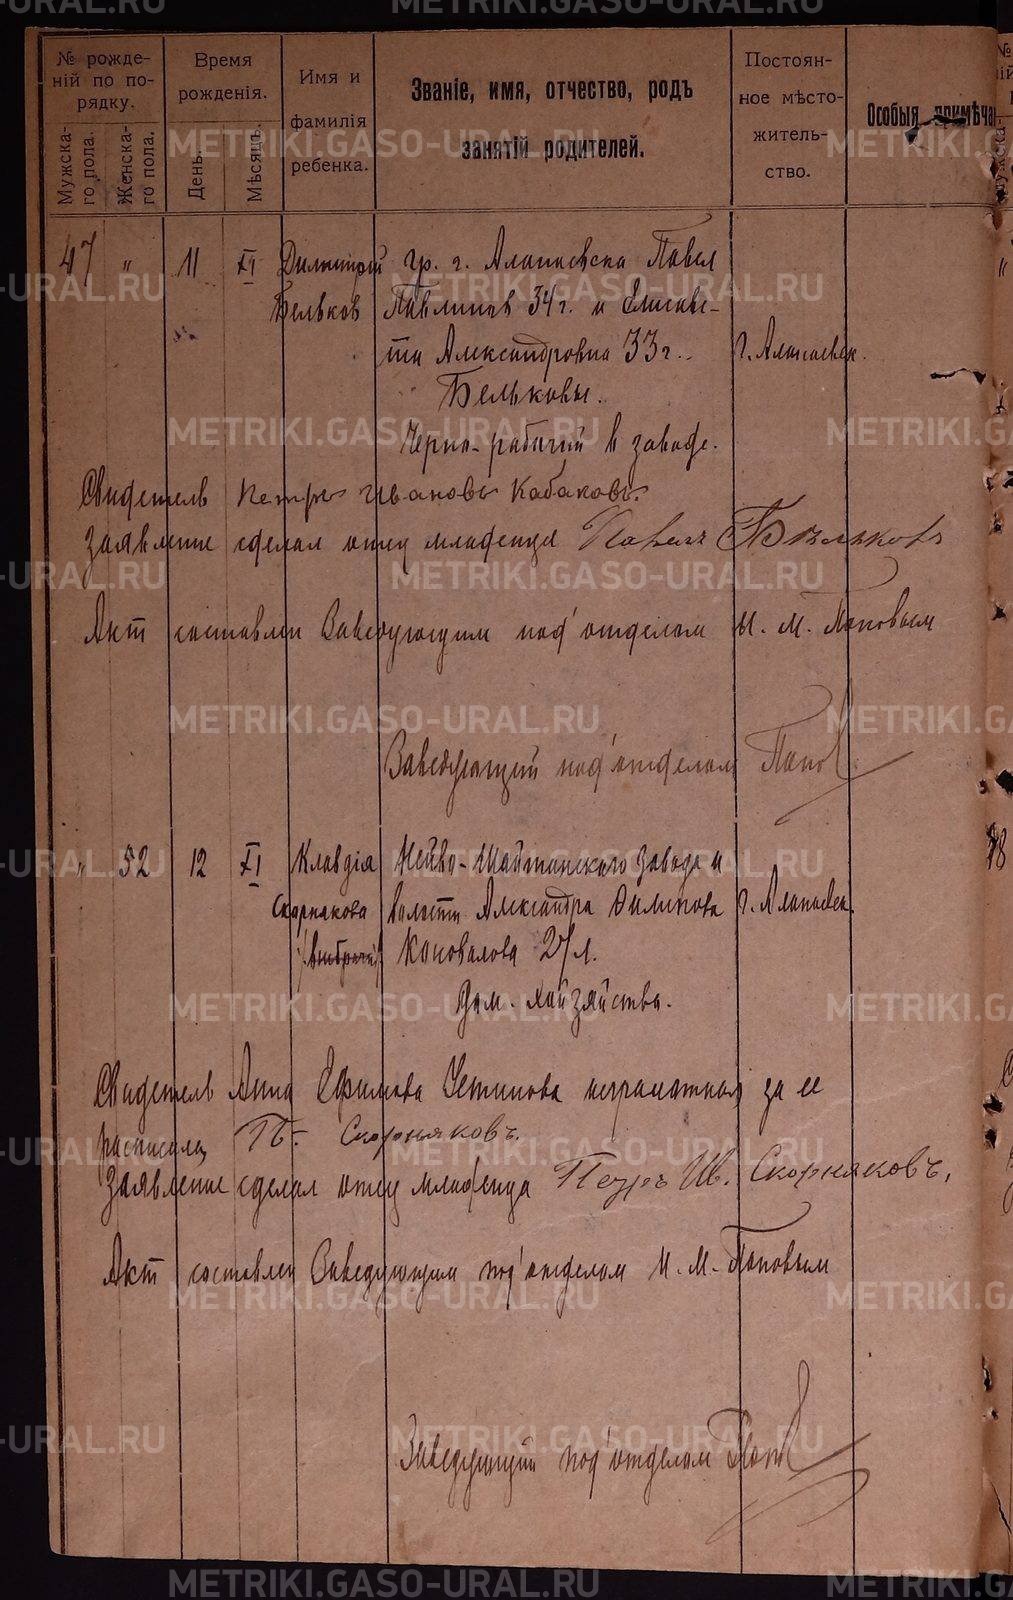 METRIKI.GASO-URAL.RU
№ рожде-
ній по по-
рядку.
Мужска-
го пола.
Женска-
го пола.
Время
рожденія.
День.
Мѣсяцъ.
Имя и
фамилія
ребенка.
Званіе, имя, отчество, родъ
занятій родителей.
Постоян-
ное мѣсто-
житель-
ство.
Особыя примѣча
47 " 11 XI
Димитрий
Бельков
гр. г. Алапаевска Павел
Павлинов 34 г. и Елисаве-
та Александровна 33 г.
Бельковы.
Черно-рабочий в заводе.
г. Алапаевск.
Свидетель Петръ Ивановъ Кабаковъ.
Заявление сделал отец младенца Павелъ Бельковъ
Акт составлен Заведующим под'отделом И. М. Поповым
Заведующий под'отделом Попов
" 52 12 XI
Клавдія
Скорнякова
Нейво-Шайтанского завода и
волости Александра Филипова
Коновалова 27 л.
Дом. хайзяйство.
г. Алапаевск.
Свидетель Анна Ефимова Устинова неграмотная за ее
расписался П. Скорняковъ.
Заявление сделал отец младенца Петръ Ив. Скорняковъ.
Акт составлен Заведующим под'отделом И. М. Поповым
Заведующий под'отделом Попов